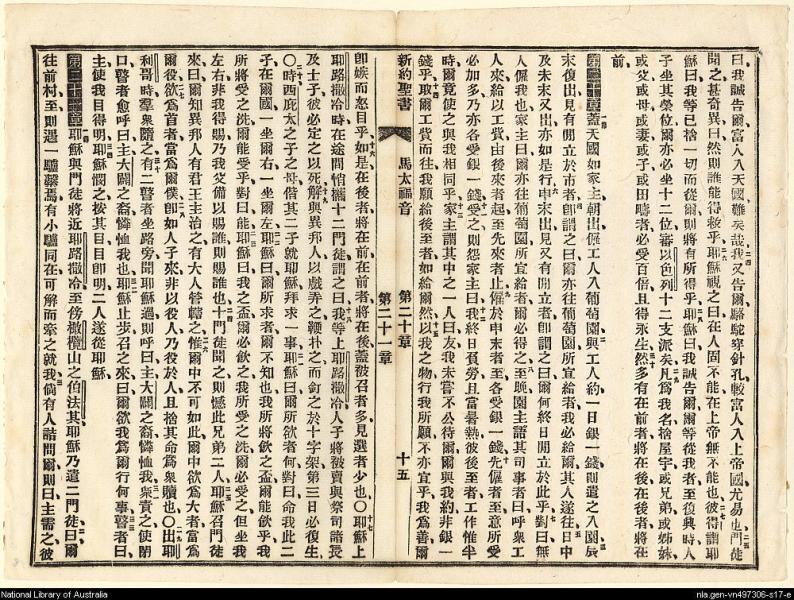 曰我誠告爾富人入天國難矣哉我又告爾駱駝穿針孔較富人入上帝國尤易也門徒
聞之甚奇異曰然則誰能得救乎耶穌視之曰在人固不能在上帝無不能也彼得謂耶
穌曰我等已捨一切而從爾則將有所得乎耶穌曰我誠告爾爾等從我者至復興時人
子坐其榮位爾亦必坐十二位審以色列十二支派矣凡爲我名捨屋宇或兄弟或姊妹
或父或母或妻或子或田疇者必受百倍且得永生然多有在前者將在後在後者將在
前
第二十章蓋天國如家主朝出僱工人入葡萄園與工人約一日銀一錢則遣之入園辰
末復出見有閒立於市者卽謂之曰爾亦往葡萄園所宜給者我必給爾其人遂往日中
及未末又出亦如是行申末出見又有閒立者卽謂之曰爾何終日閒立於此乎對曰無
人僱我也家主曰爾亦往葡萄園所宜給者爾必得之至晚園主語其司事者曰呼衆工
人來給以工貲由後來者起至先來者止僱於申末者至各受銀一錢先僱者至意所受
必加多乃亦各受銀一錢受之則怨家主曰我終日負勞且當暑熱彼後至者工作惟半
時爾竟使之與我相同乎家主謂其中之一人曰友我未嘗不公待爾爾與我約非銀一
錢乎取爾工貲而往我願給後至者如給爾然以我之物行我所願不亦宜乎我爲善爾
新約聖書 馬太福音 第二十章 第二十一章 十五
卽嫉而怒目乎如是在後者將在前在前者將在後蓋被召者多見選者少也○耶穌上
耶路撒冷時在途間悄攜十二門徒謂之曰我等上耶路撒冷人子將被賣與祭司諸長
及士子彼必定之以死解與異邦人以戲弄之鞭朴之而釘之於十字架第三日必復生
○時西庇太之子之母偕其二子就耶穌拜求一事耶穌曰爾所欲者何對曰命我此二
子在爾國一坐爾右一坐爾左耶穌曰爾所求者爾不知也我所將飲之盃爾能飲乎我
所將受之洗爾能受乎對曰能耶穌曰我之盃爾必飲之我所受之洗爾必受之但坐我
左右非我得賜乃我父備以賜誰則賜誰也十門徒聞之則憾此兄弟二人耶穌召門徒
來曰爾知異邦人有君王主治之有大人管轄之惟爾中不可如此爾中欲爲大者當爲
爾役欲爲首者當爲爾僕卽如人子來非以役人乃役於人且捨其命爲衆贖也○出耶
利哥時羣衆隨之有二瞽者坐路旁聞耶穌過則呼曰主大闢之裔憐恤我衆責之使閉
口瞽者愈呼曰主大闢之裔憐恤我也耶穌止步召之來曰爾欲我爲爾行何事瞽者曰
主使我目得明耶穌憫之按其目目卽明二人遂從耶穌
第二十一章耶穌與門徒將近耶路撒冷至傍橄欖山之伯法其耶穌乃遣二門徒曰爾
往前村至則遇一驢繫焉有小驢同在可解而牽之就我倘有人詰問爾則曰主需之彼
National Library of Australia
nla.gen-vn497306-s17-e